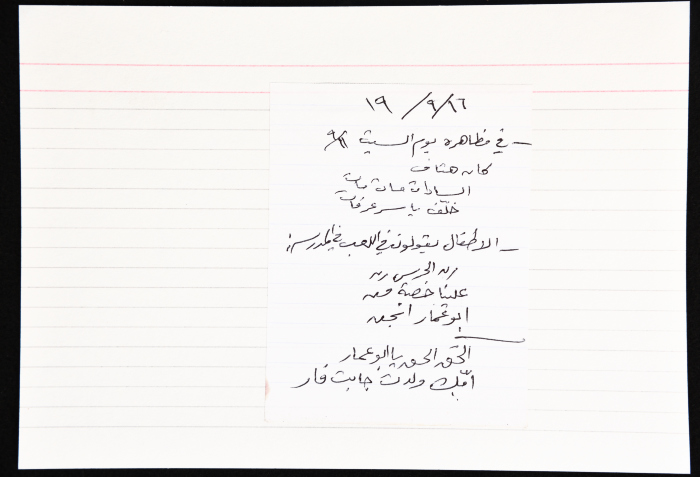 ١٦/٩/ ١٩
- في مظاهرة يوم السبت
كان هتاف
السادات مات مات
خلّف ياسر عرفات
- الاطفال يقولون في اللعب في المدرسة:
رن الجرس رن
علينا حصة فن
ابو عمار انجن
الحق الحق يا ابو عمار
امّك ولدت جابت فار